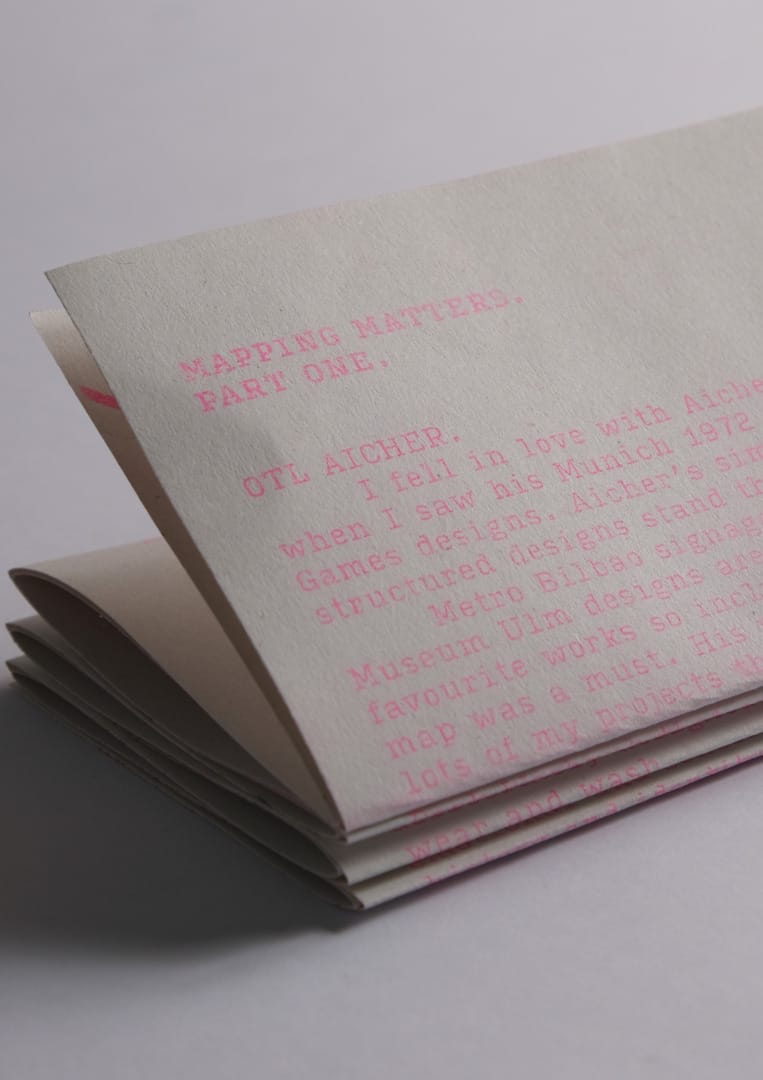 MAPPING MATTERS.
PART ONE.
OTL AICHER.
I fell in love with Aiche
when I saw his Munich 1972
Games designs. Aicher's sim
structured designs stand th
Metro Bilbao signag
Museum Ulm designs are
favourite works so incl
map was a must. His
lots of my projects th
wear and wash